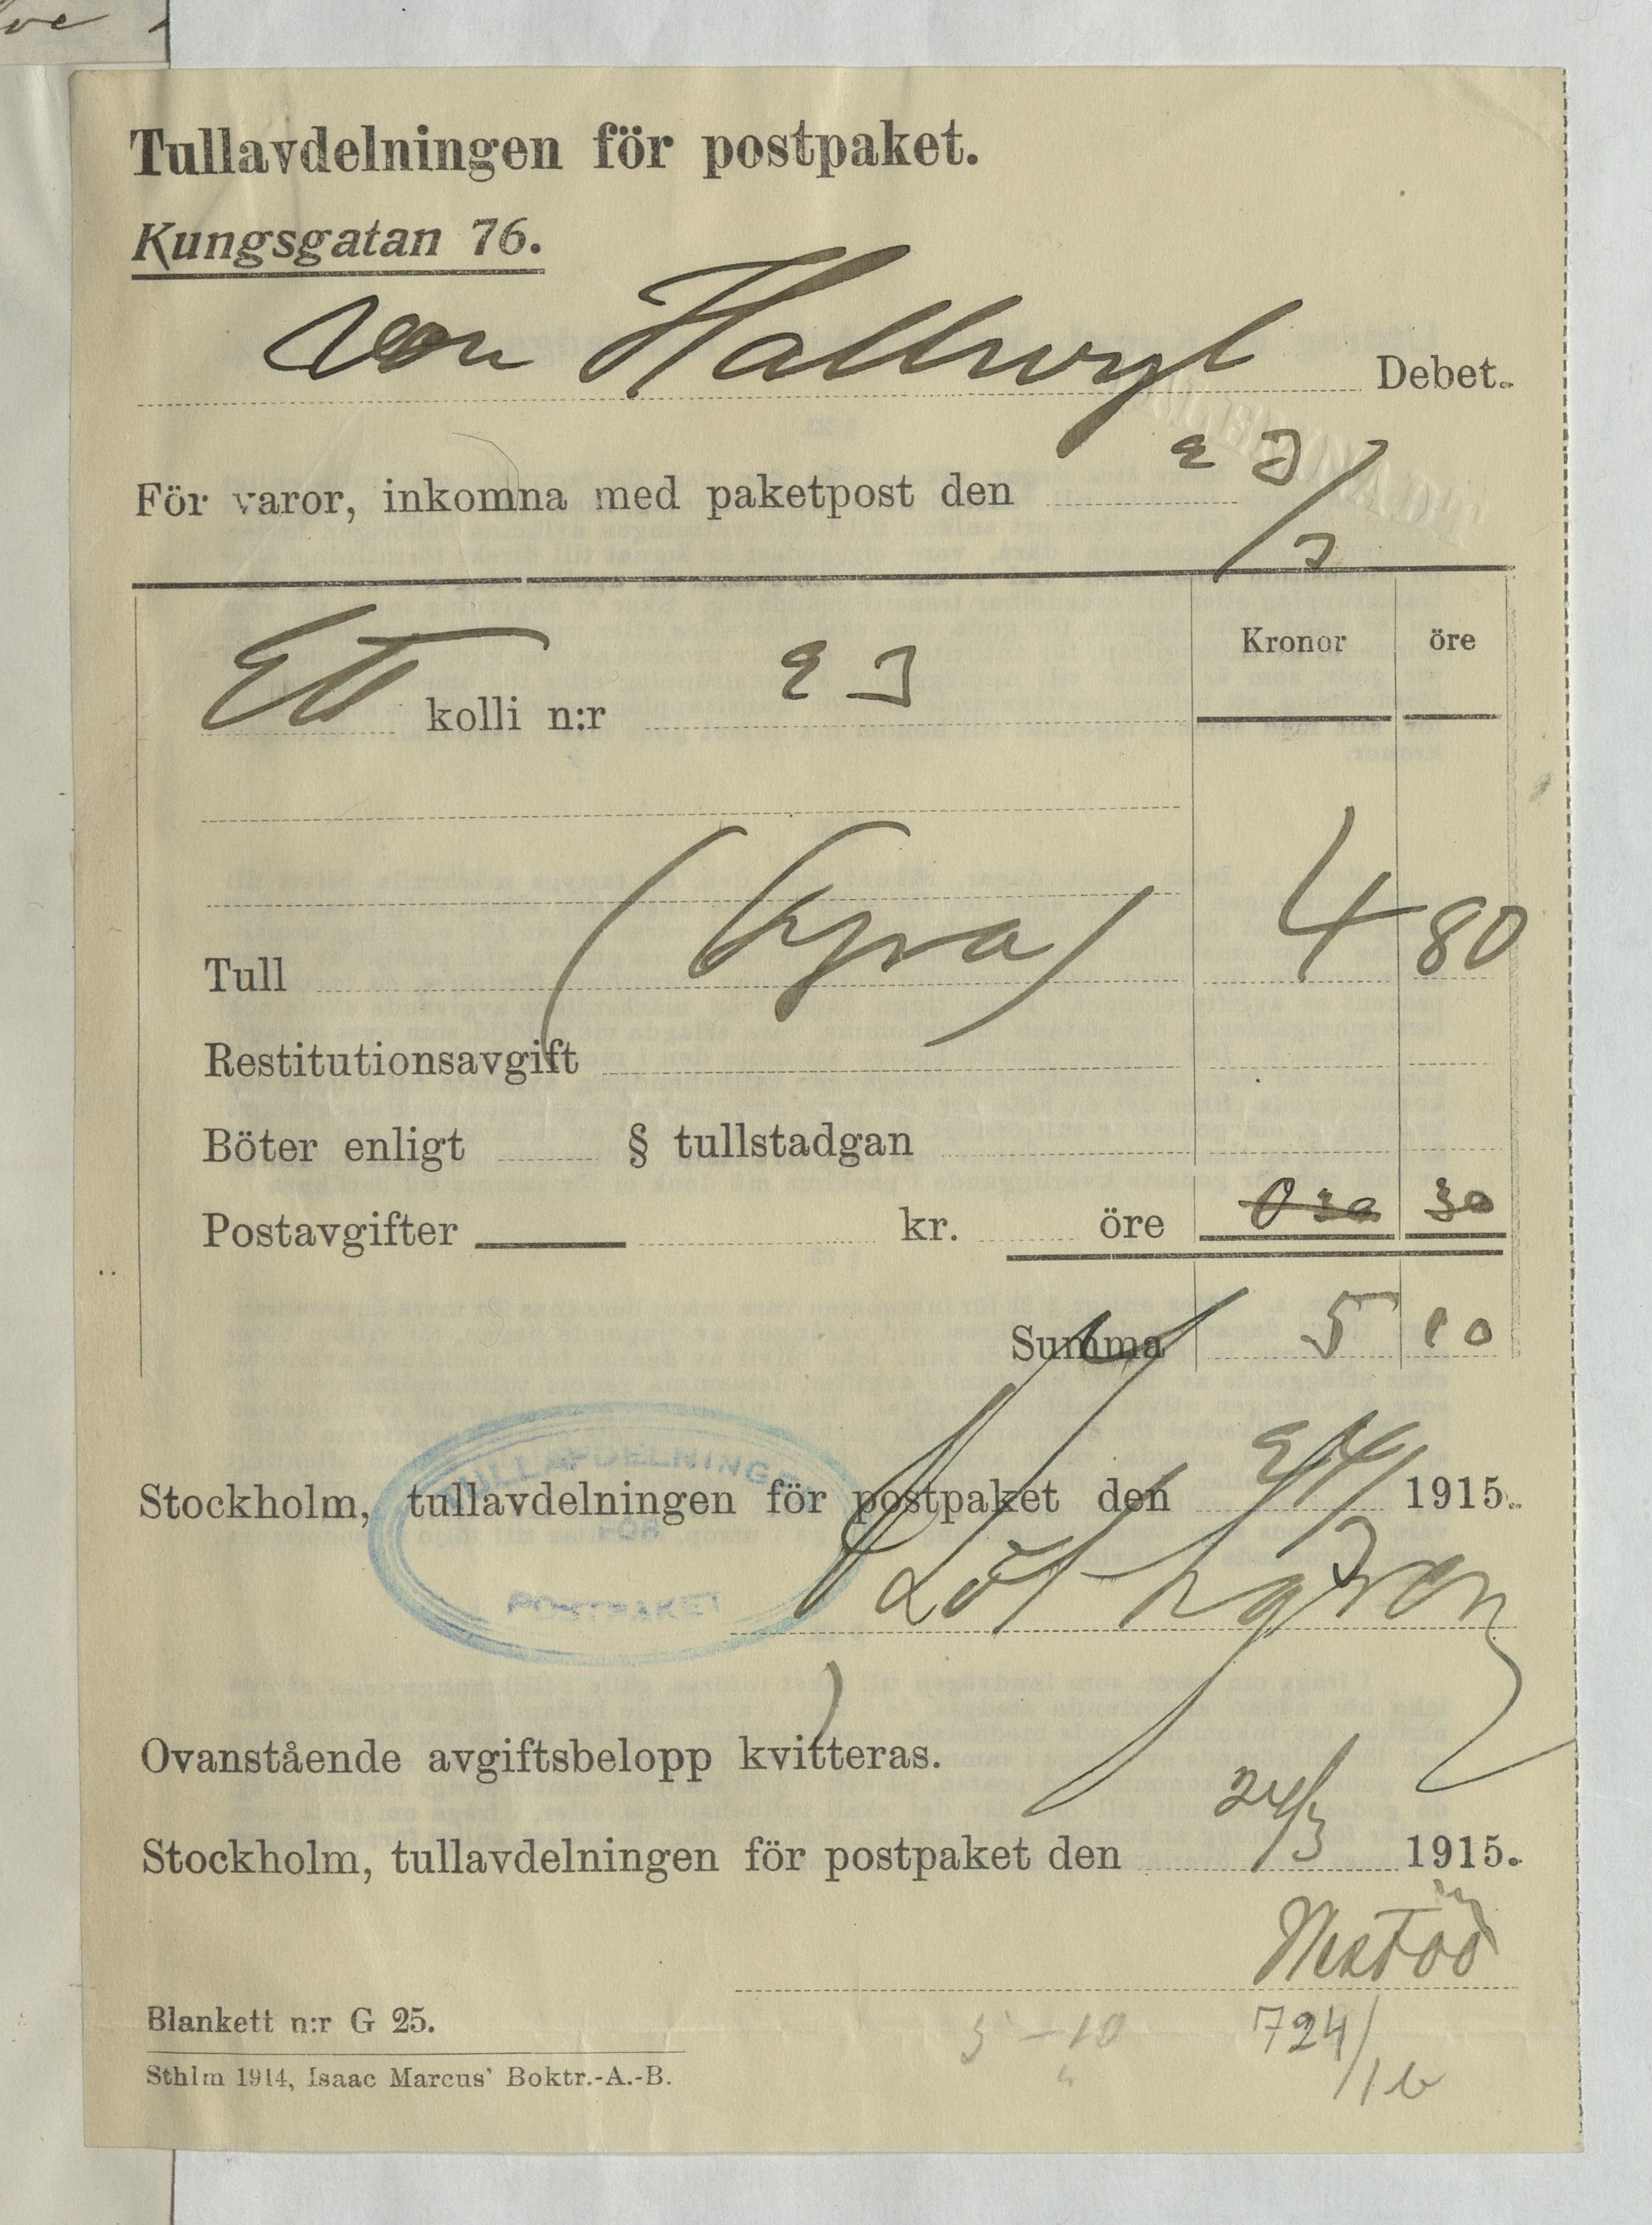 Tullavdelningen för postpaket.
Kungsgatan 76.
von Hallwyl Debet.
För varor, inkomna med paketpost den 23/3
Kronor öre
Ett kolli n:r 23
Tull 4 80
Restitutionsavgift
Böter enligt § tullstadgan
Postavgifter kr. öre 0 30 30
Summa 5 10
TULLAFDELNINGEN
FÖR
POSTPAKET
Stockholm, tullavdelningen för postpaket den 24/3 1915.
Löfhgren
Ovanstående avgiftsbelopp kvitteras.
Stockholm, tullavdelningen för postpaket den 24/3 1915.
Blankett n:r G 25.
5-10
724/1b
Sthlm 1914, Isaac Marcus' Boktr.-A.-B.